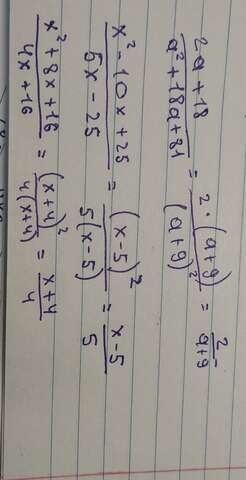 (2a + 18)/(a² + 18a + 81) = (2 · (a + 9))/((a + 9)²) = 2/(a + 9)
(x² - 10x + 25)/(5x - 25) = (x - 5)²/(5(x - 5)) = (x - 5)/5
(x² + 8x + 16)/(4x + 16) = (x + 4)²/(4(x + 4)) = (x + 4)/4